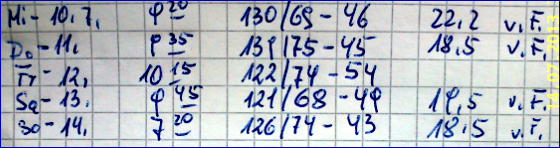 Mi - 10.7. 9 20 130/69 - 46 22,2 v.F.
Do - 11. 9 35 139/75 - 45 18,5 v.F.
Fr - 12. 10 15 122/74 - 54
Sa - 13. 9 45 121/68 - 49 19,5 v.F.
So - 14. 7 20 126/74 - 43 18.5 v.F.